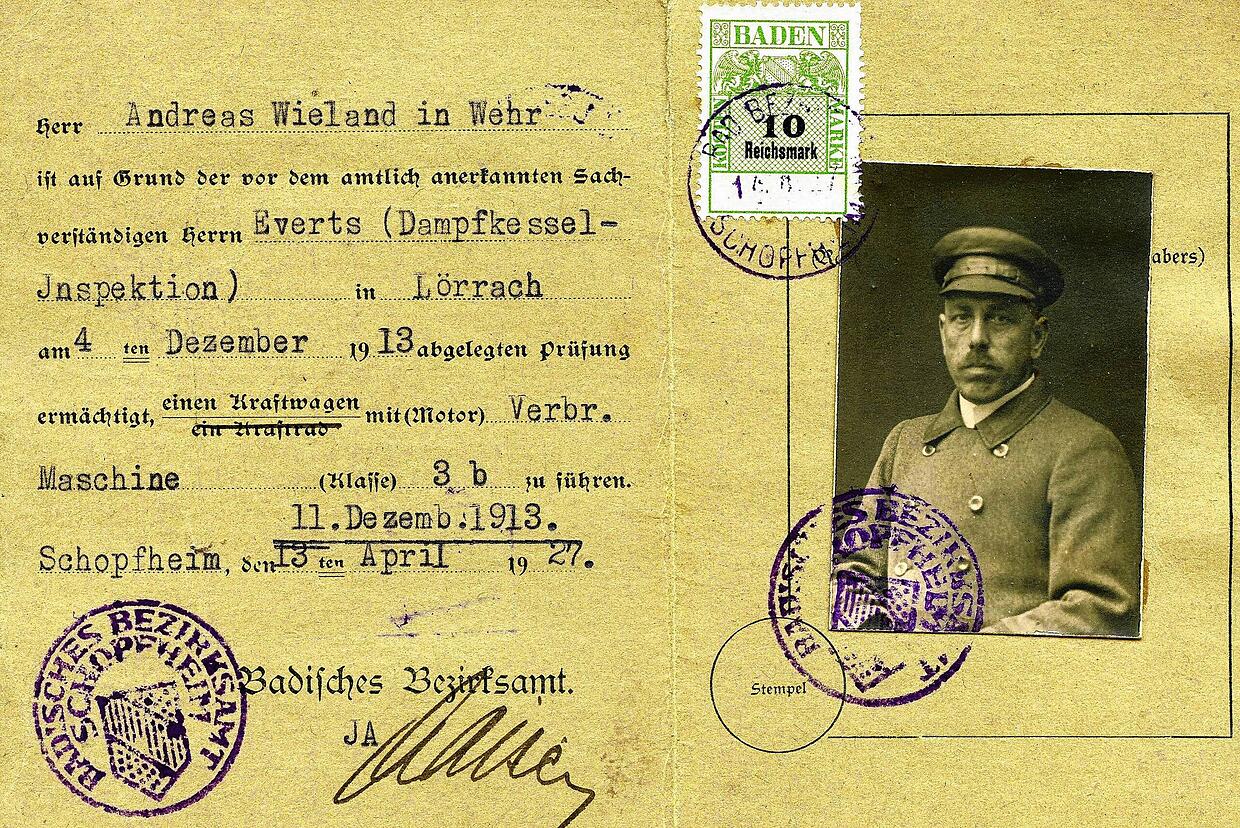 Herr Andreas Wieland in Wehr
ist auf Grund der vor dem amtlich anerkannten Sach-
verständigen Herrn Everts (Dampfkessel-
Jnspektion) in Lörrach
am 4 ten Dezember 1913 abgelegten Prüfung
ermächtigt, einen Kraftwagen mit (Motor) Verbr.
ein Kraftrad
Maschine (Klasse) 3 b zu führen.
11.Dezemb.1913.
Schopfheim, den 13 ten April 1927.
Badisches Bezirksamt.
JA
BADISCHES BEZIRKSAMT
SCHOPFHEIM
BADEN
10
Reichsmark
MARKE
BAD BEZ
SCHOPFHEIM
abers)
BADISCHES BEZIRKSAMT
SCHOPFHEIM
Stempel